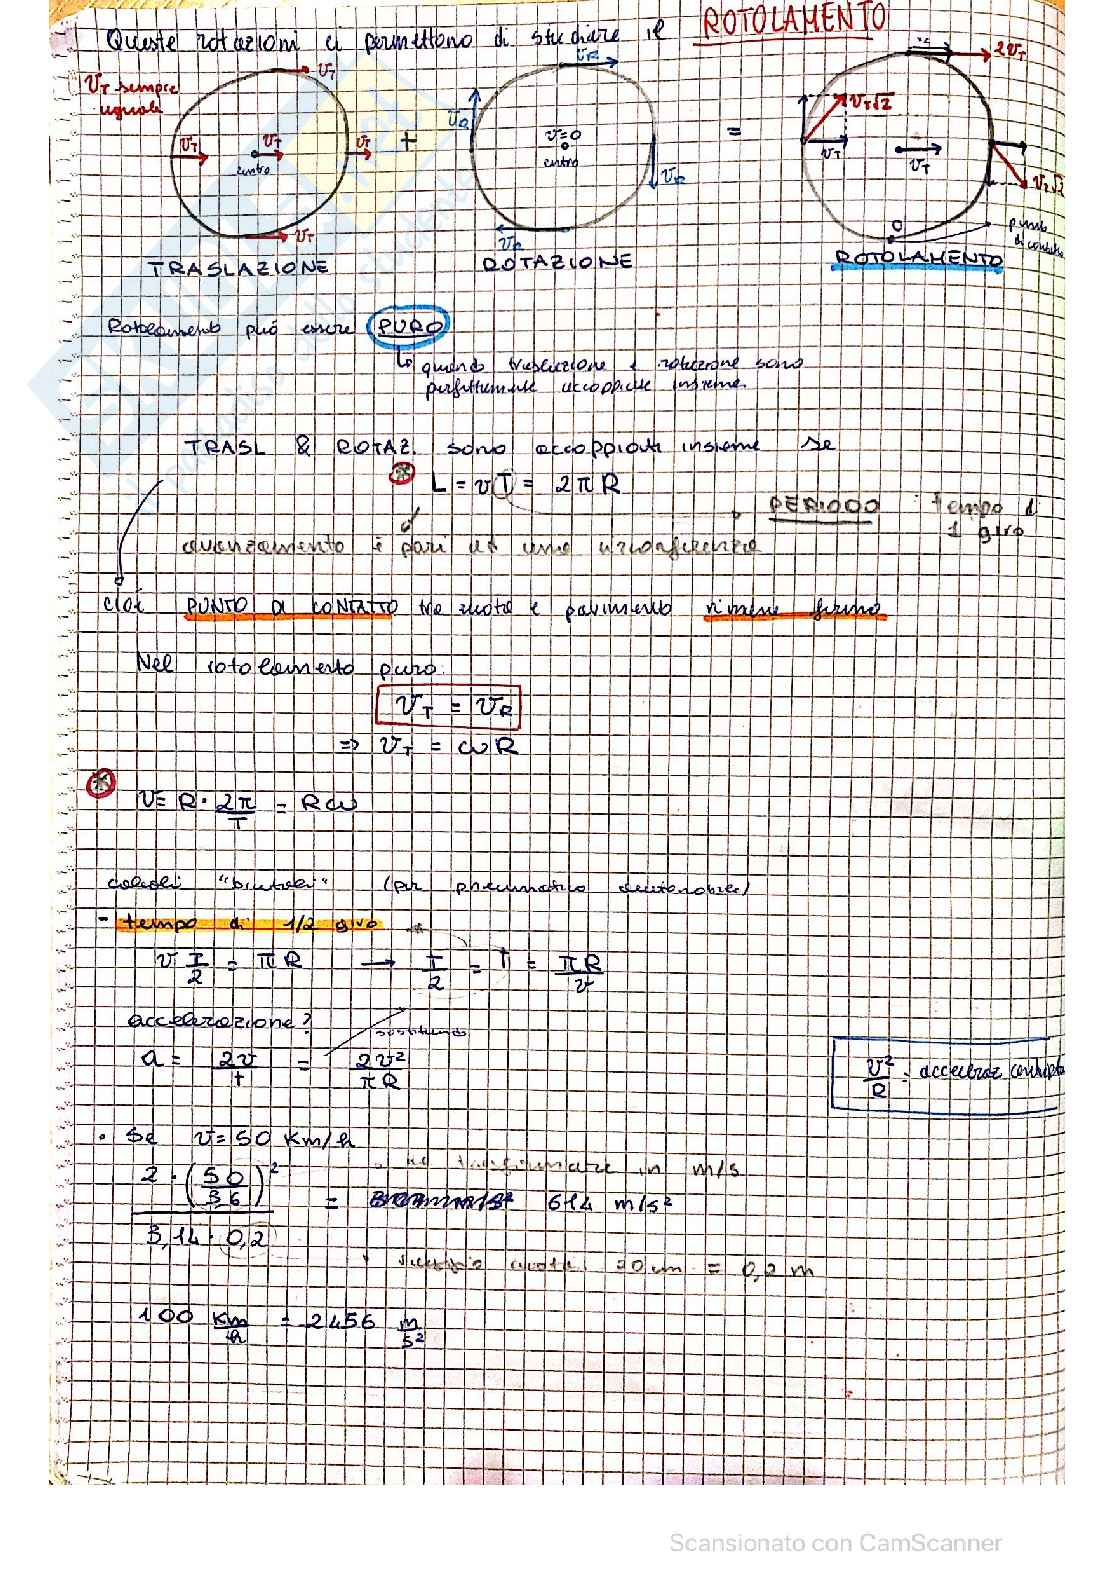 Queste rotazioni ci permettono di studiare il ROTOLAMENTO
v_T sempre uguale
v_T
v_T
v_T
centro
v_T
v_T
+
v_R
v_R
v=0
centro
v_R
v_R
=
2v_T
v_T√2
v_T
v_T
v_T√2
0
punto di contatto
TRASLAZIONE
ROTAZIONE
ROTOLAMENTO
Rotolamento può essere PURO
↳ quando traslazione e rotazione sono
perfettamente accoppiate insieme.
TRASL & ROTAZ. sono accoppiati insieme se
* L = vT = 2πR
PERIODO tempo di 1 giro
avanzamento è pari ad una circonferenza
cioè PUNTO DI CONTATTO tra ruota e pavimento rimane fermo
Nel rotolamento puro
v_T = v_R
=> v_T = ωR
*
v = R · 2π/T = Rω
calcoli (per pneumatico
- tempo di 1/2 giro
v T/2 = πR → T/2 = t = πR/v
accelerazione?
sostituendo
a = 2v/t = 2v²/πR
v²/R = acceleraz centripeta
• Se v = 50 Km/h
2 · (50/3,6)² / 3,14 · 0,2 = 614 m/s²
in m/s
ruota 20 cm = 0,2 m
100 Km/h = 2456 m/s²
Scansionato con CamScanner